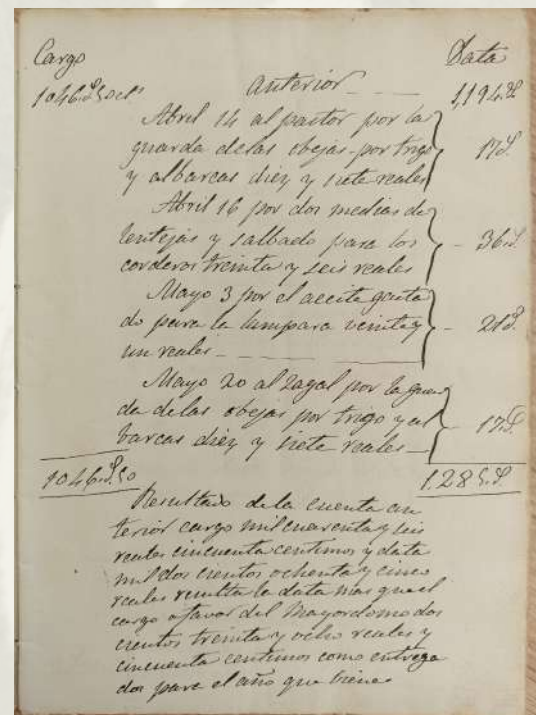 Cargo Data
1046.,50 cs anterior 1,194.
Abril 14 al pastor por la
guarda delas obejas por trigo
y albarcas diez y siete reales 17
Abril 16 por dos medias de
lentejas y salbado para los
corderos treinta y seis reales 36
Mayo 3 por el aceite gasta
do para la lampara veinte y
un reales 21
Mayo 20 al zagal por la guar
da delas obejas por trigo y al
barcas diez y siete reales 17
1046.,50 1.285
Resultado de la cuenta an
terior cargo mil cuarenta y seis
reales cincuenta centimos y data
mil dos cientos ochenta y cinco
reales resulta la data mas que el
cargo a favor del Mayordomo dos
cientos treinta y ocho reales y
cincuenta centimos como entrega
dos para el año que viene